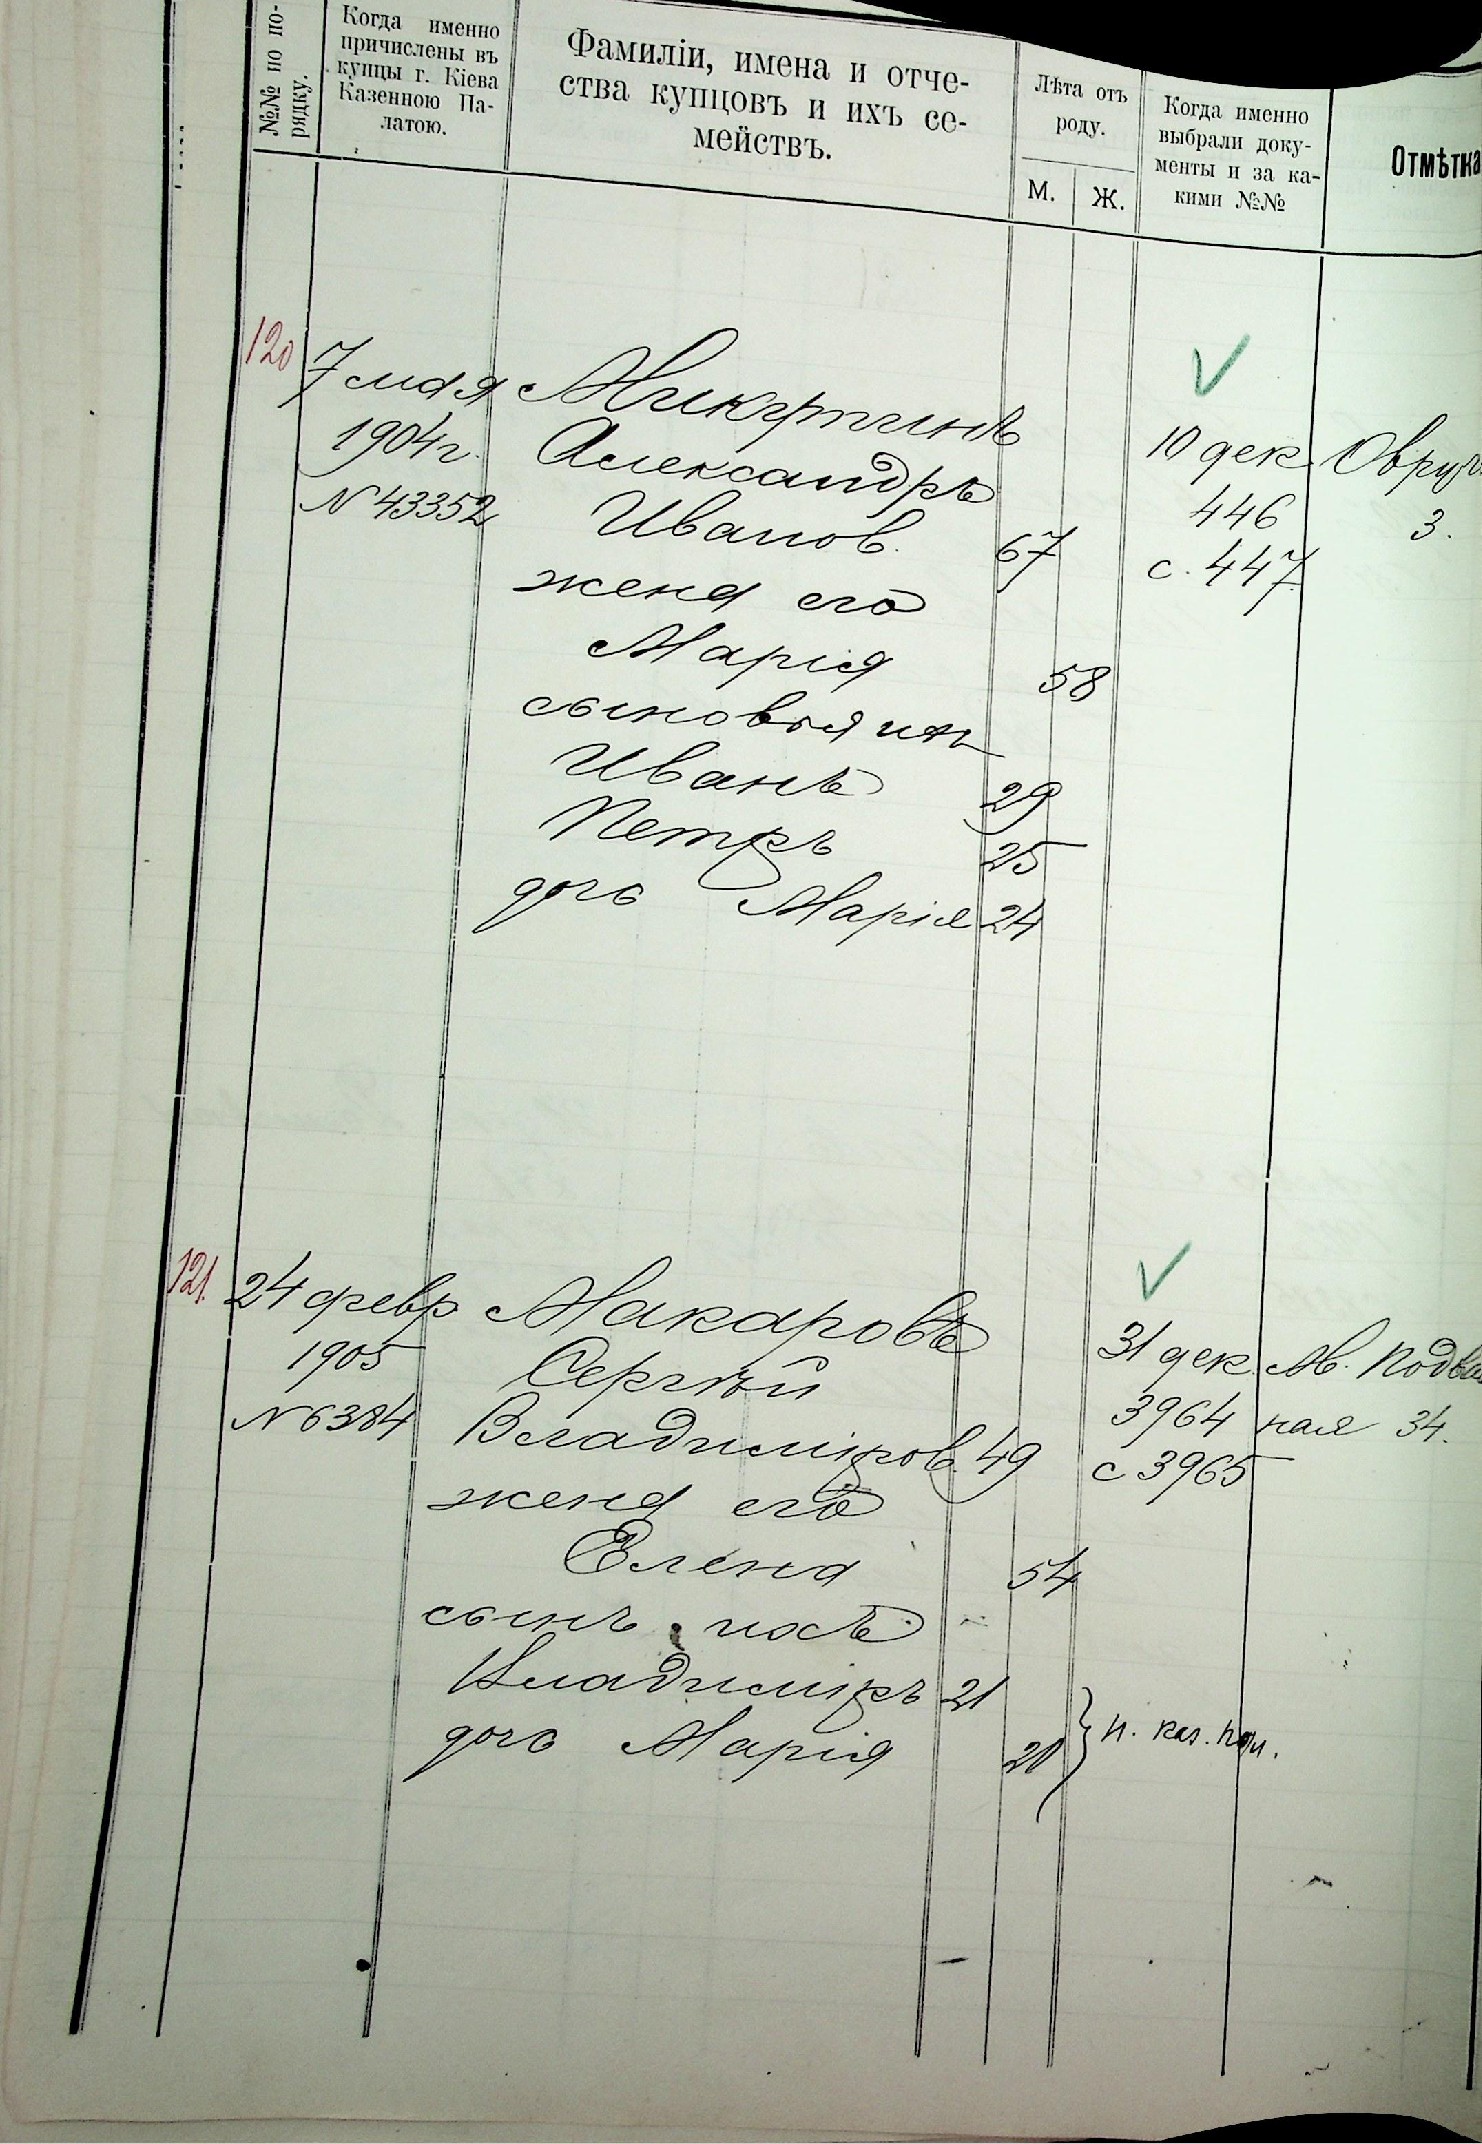 №№ по по-
рядку.
Когда именно
причислены въ
купцы г. Кіева
Казенною Па-
латою.
Фамиліи, имена и отче-
ства купцовъ и ихъ се-
мействъ.
Лѣта отъ
роду.
М.
Ж.
Когда именно
выбрали доку-
менты и за ка-
кими №№
Отмѣтка
120
7 мая
1904 г.
№ 43352
Микутинъ
Александръ
Иванов.
67
жена его
Марія
58
сыновья ихъ
Иванъ
29
Петръ
25
дочь Марія
24
10 дек.
446
с. 447
Овруч
3.
121.
24 февр
1905
№ 6384
Макаровъ
Сергѣй
Владиміров.
49
жена его
Елена
54
сынъ ихъ
Владиміръ
21
дочь Марія
20
31 дек.
3964
с 3965
Мв. Подваль
ная 34.
п. каз. пал.